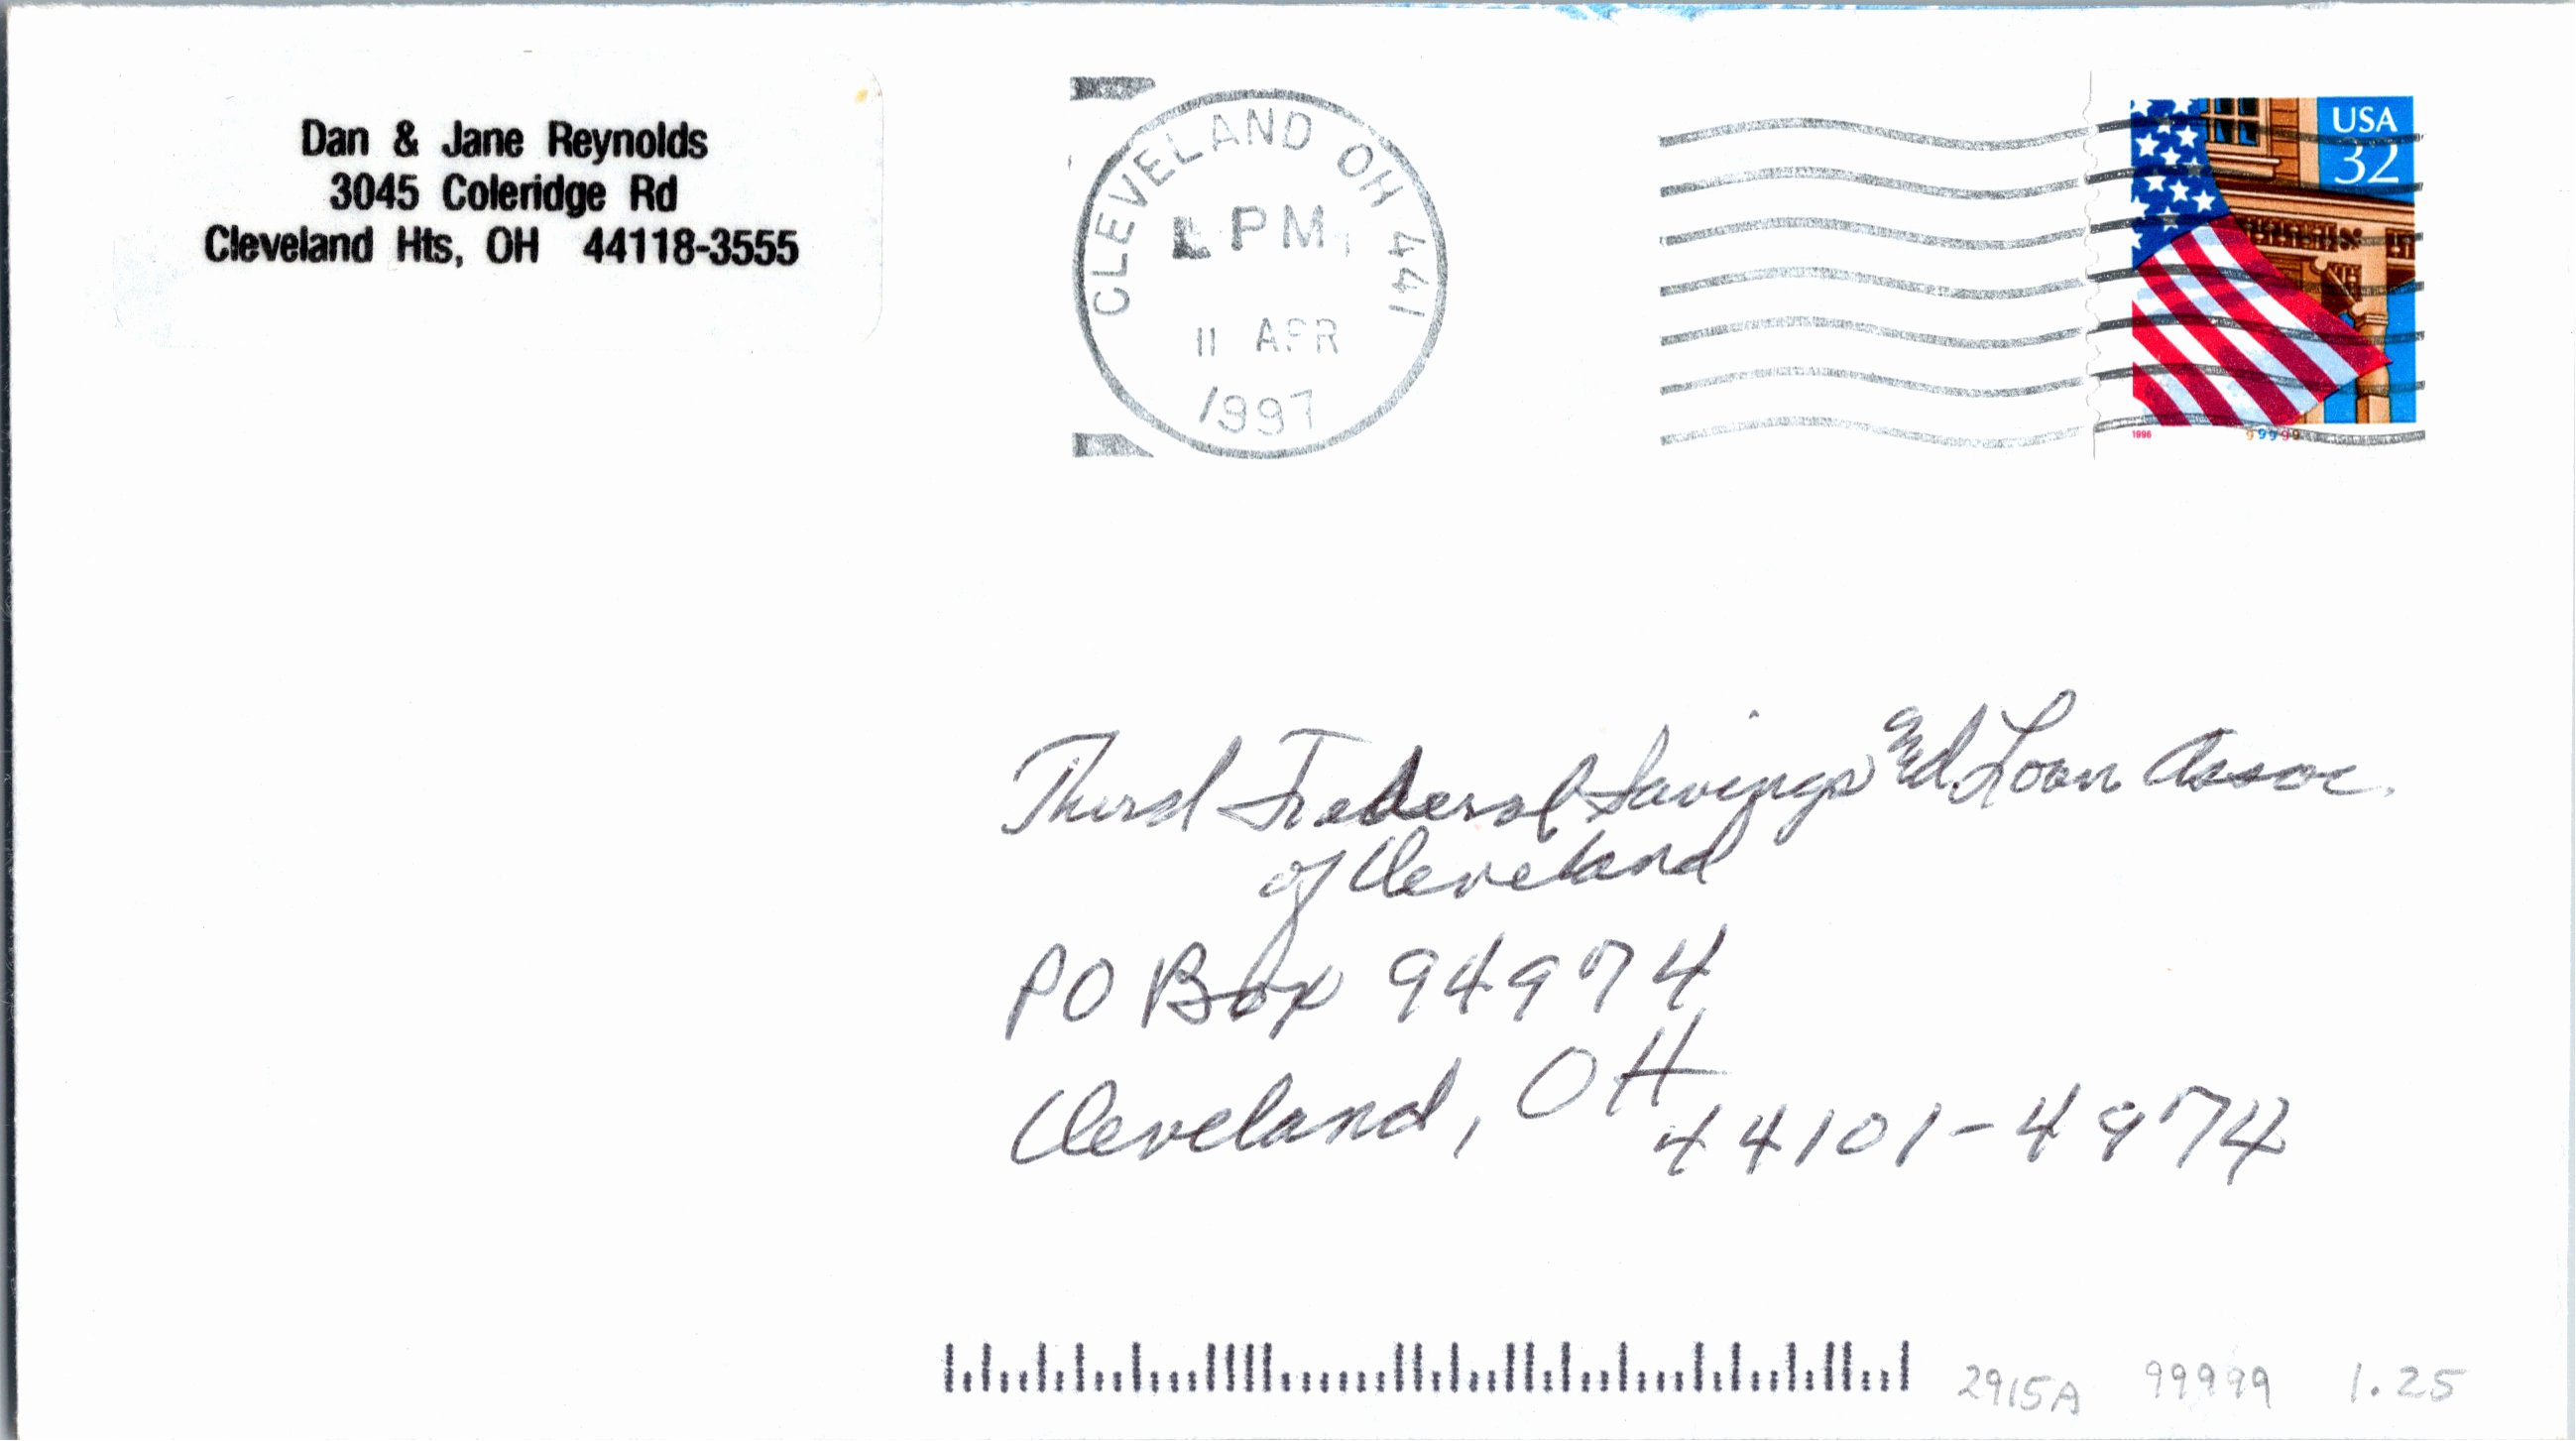 Dan & Jane Reynolds
3045 Coleridge Rd
Cleveland Hts, OH 44118-3555
CLEVELAND OH 441
PM
11 APR
1997
USA
32
1996
99999
Third Federal Savings and Loan Assoc.
of Cleveland
PO Box 94974
Cleveland, OH
44101-4974
2915A 99999 1.25